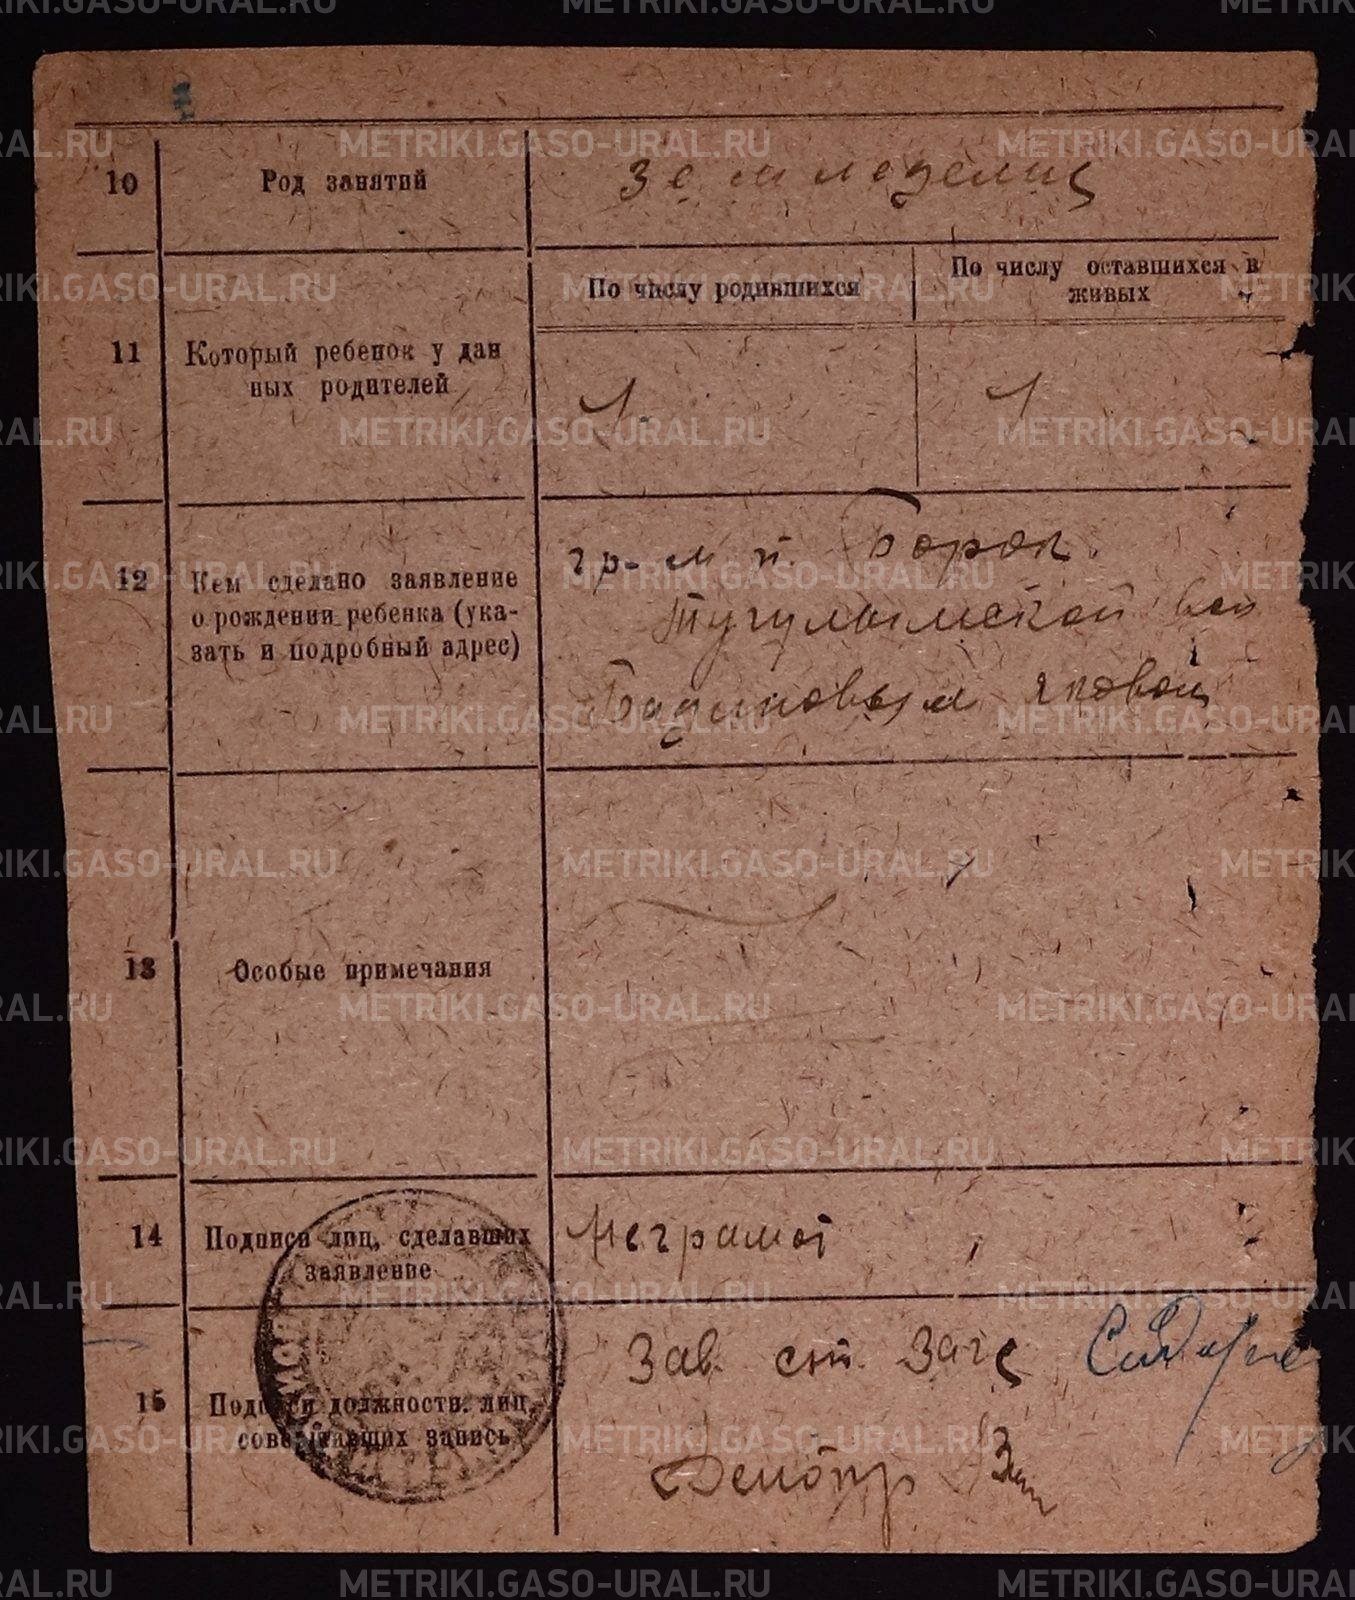 10 Род занятий Земледелиц
11 Который ребенок у дан
ных родителей
По числу родившихся
По числу оставшихся в
живых
1. 1
12 Кем сделано заявление
о рождении ребенка (ука-
зать и подробный адрес)
гр-м п. Борок.
Тугулымской вол
13 Особые примечания
14 Подписи лиц, сделавших
заявление
Неграмот
15 Подписи должности. лиц,
совершавших запись
Зав. ст. Загс
METRIKI.GASO-URAL.RU